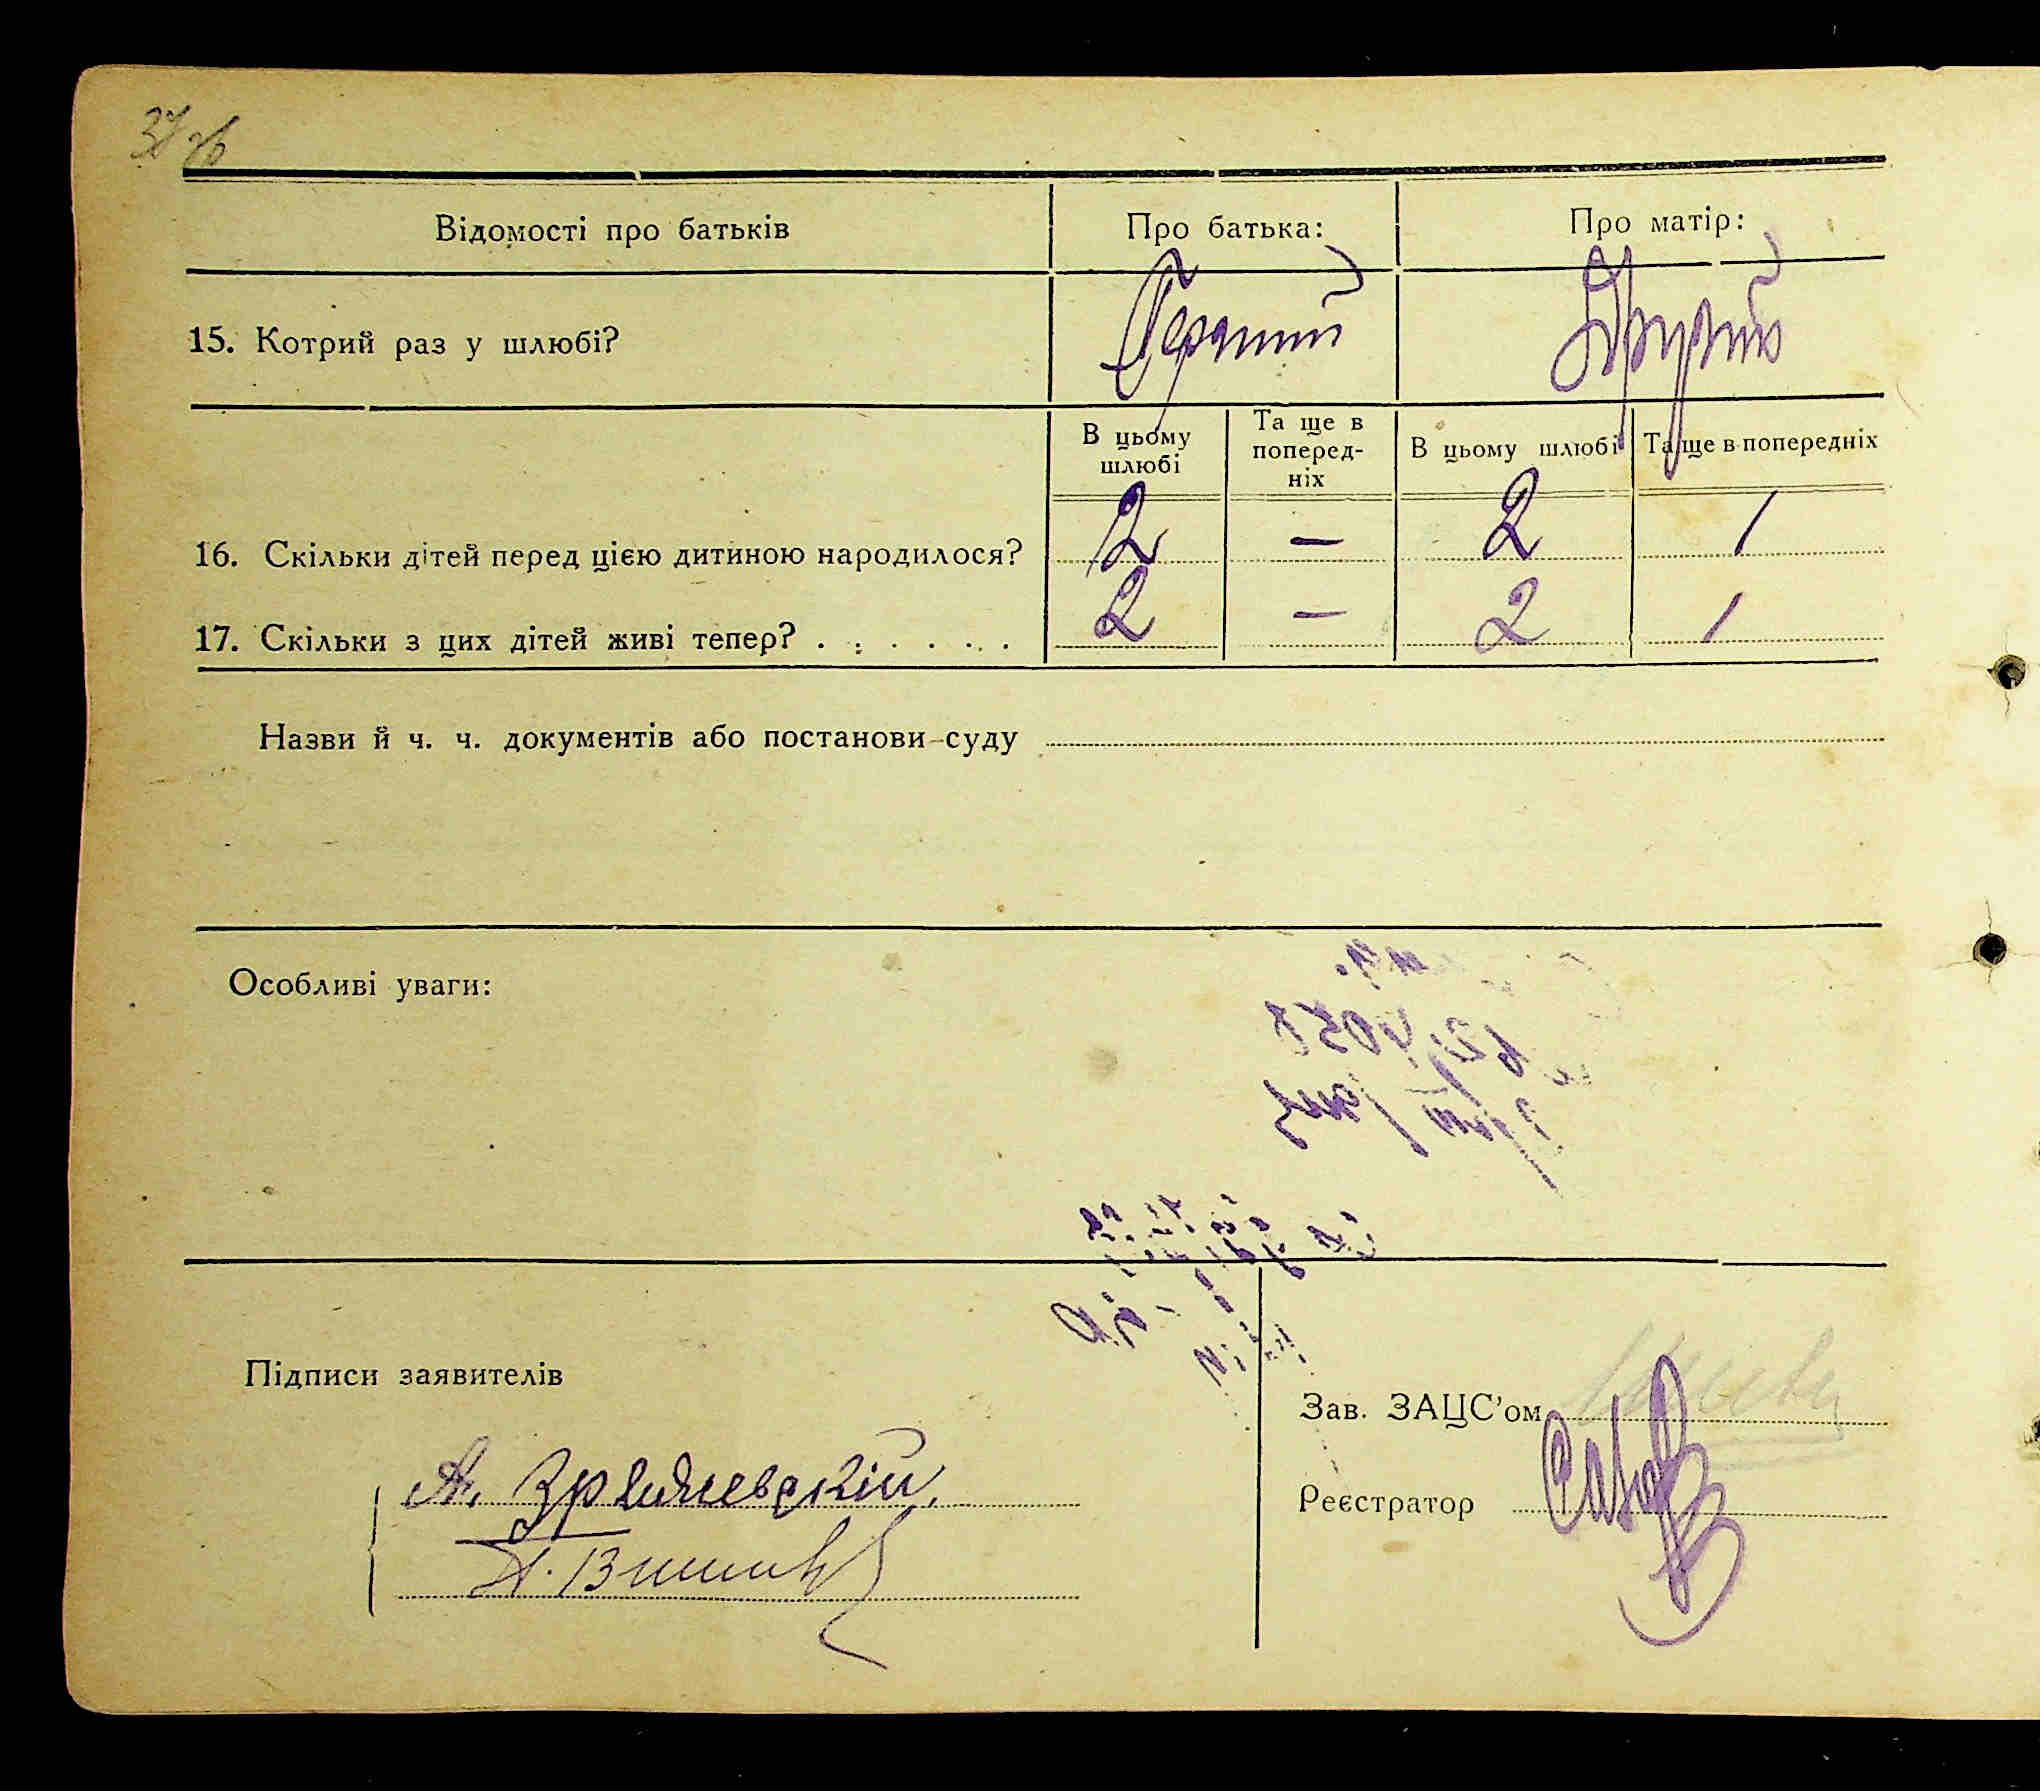 37 зв
Відомості про батьків Про батька: Про матір:
15. Котрий раз у шлюбі? Перший Другий
В цьому шлюбі Та ще в поперед-ніх В цьому шлюбі Та ще в попередніх
16. Скільки дітей перед цією дитиною народилося? 2 — 2 1
17. Скільки з цих дітей живі тепер? . . . . . . . 2 — 2 1
Назви й ч. ч. документів або постанови суду
Особливі уваги:
Підписи заявителів
Зав. ЗАЦС'ом
А.
Реєстратор